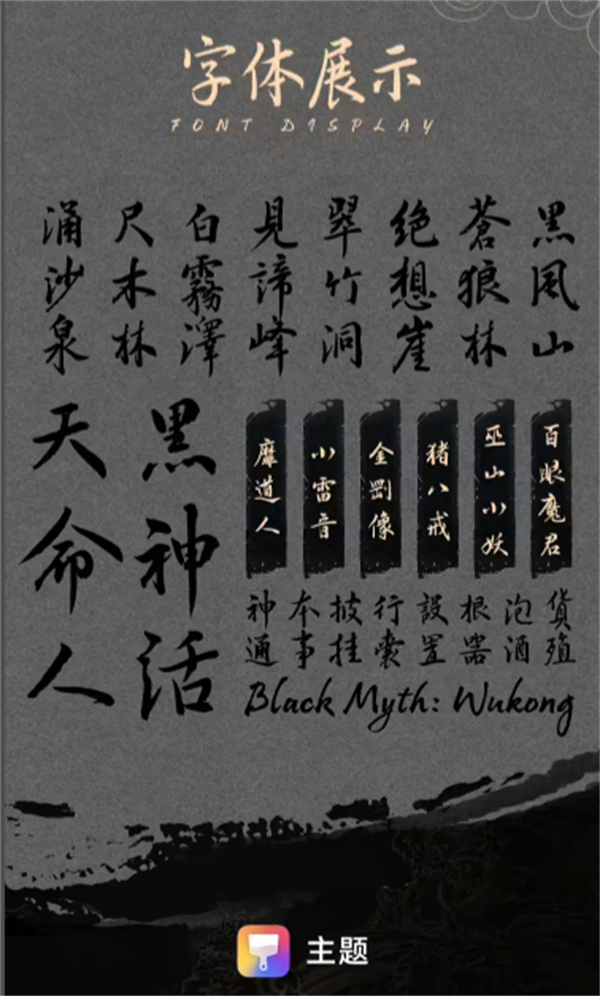 字体展示
FONT DISPLAY
黑風山
蒼狼林
绝想崖
翠竹洞
見諦峰
白霧澤
尺木林
涌沙泉
黑神话
天命人
百眼魔君
巫山小妖
猪八戒
金剛像
小雷音
靡道人
貨殖
泡酒
根器
設置
行囊
披挂
本事
神通
Black Myth: Wukong
主题